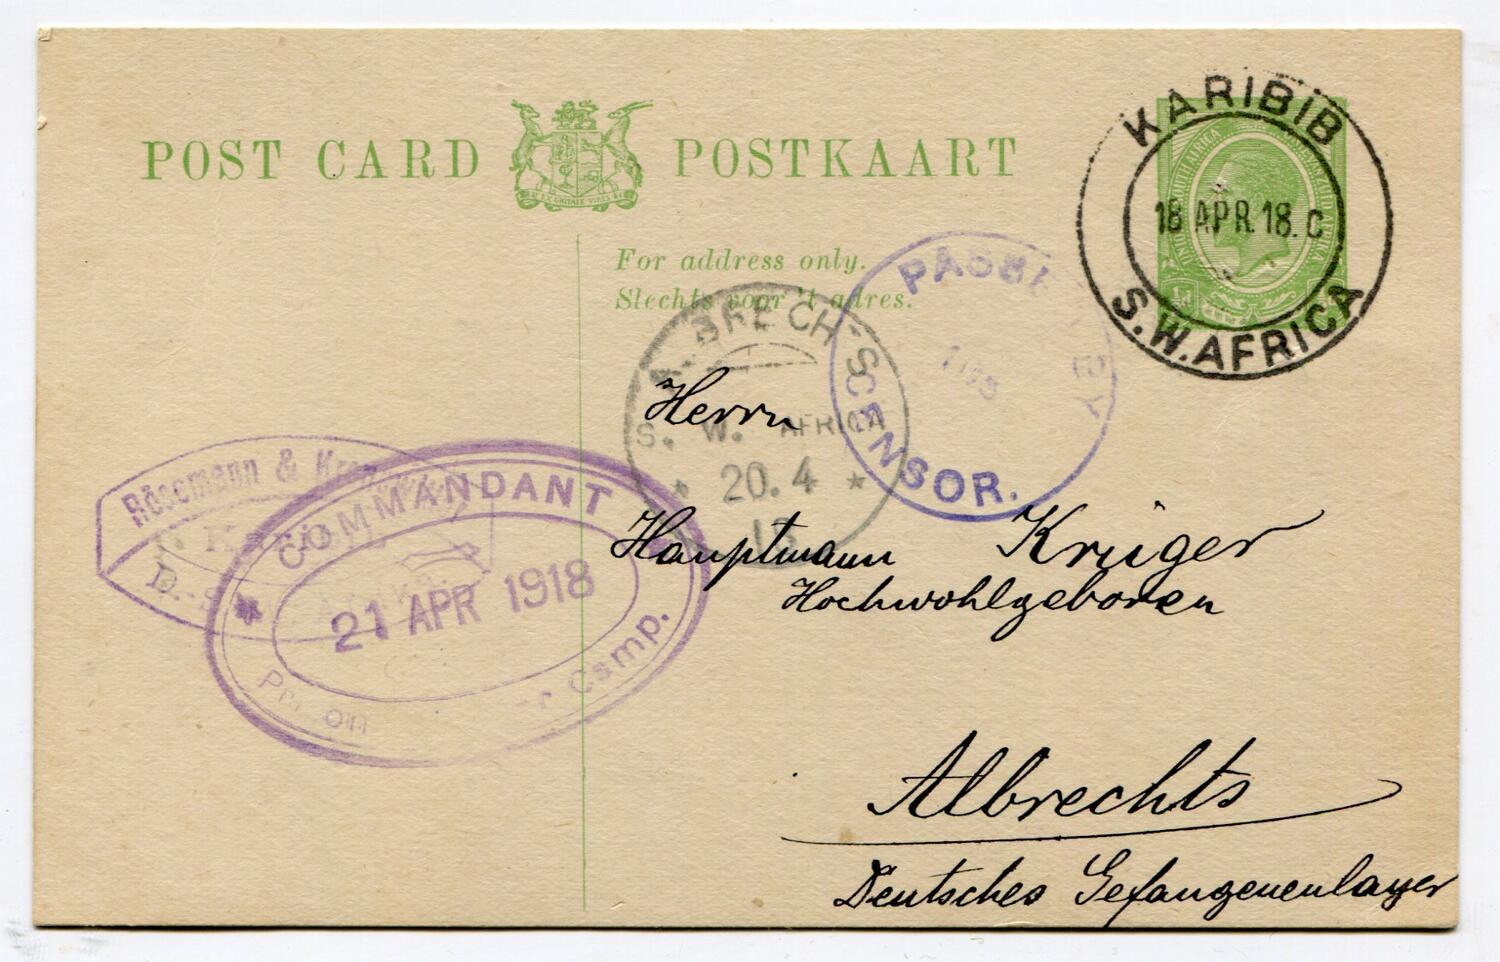 POST CARD POSTKAART
EX UNITATE VIRES
For address only.
Slechts voor 't adres.
KARIBIB
18 APR. 18. C
S.W. AFRICA
½d
PASSED BY
CENSOR.
ALBRECHTS
S. W. AFRICA
* 20. 4 *
18
Rösemann &
COMMANDANT
21 APR 1918
Camp.
Herrn
Hauptmann Krüger
Hochwohlgeboren
Albrechts
Deutsches Gefangenenlager